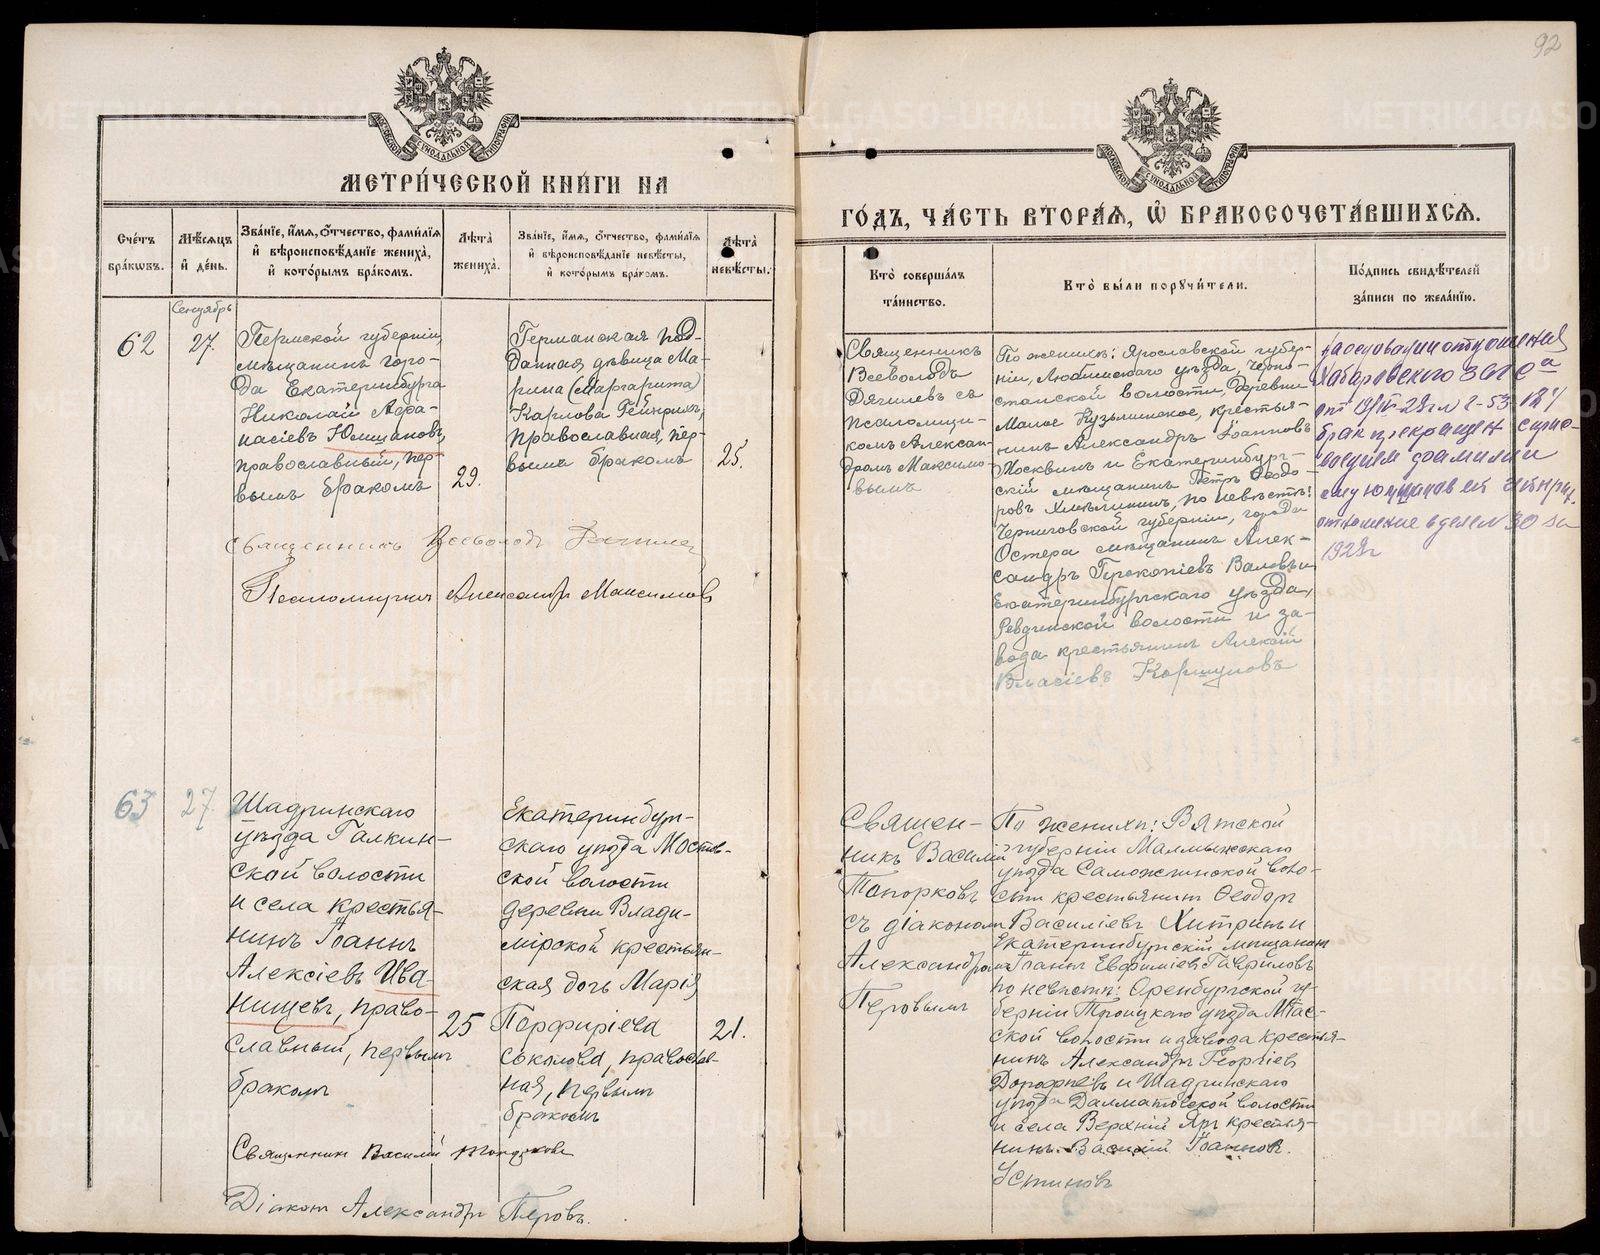 92
МЕТРИЧЕСКОЙ КНИГИ НА
ГОДЪ, ЧАСТЬ ВТОРАЯ, Ѡ БРАКОСОЧЕТАВШИХСЯ.
Счетъ браковъ.
Мѣсяцъ и день.
Званіе, имя, отчество, фамилія и вѣроисповѣданіе жениха, и которымъ бракомъ.
Лѣта жениха.
Званіе, имя, отчество, фамилія и вѣроисповѣданіе невѣсты, и которымъ бракомъ.
Лѣта невѣсты.
Кто совершалъ таинство.
Кто были поручители.
Подпись свидѣтелей записи по желанію.
Сентябрь
62
27.
Пермской губерніи,
мѣщанинъ горо-
да Екатеринбурга
Николай Афа-
насіевъ Юмшановъ,
православный, пер-
вымъ бракомъ
29.
Германская под-
данная дѣвица Ма-
рина (Маргарита)
Карлова Гейнрихъ,
православная, пер-
вымъ бракомъ
25.
Священникъ
Всеволодъ
Дягилевъ съ
псаломщи-
комъ Алексан-
дромъ Максимо-
вымъ
По женихѣ: Ярославской губер-
ніи, Любимскаго уѣзда,
волости, деревни
Малое Кузьминское, крестья-
нинъ Александръ Іоанновъ
Москвинъ и Екатеринбург-
скій мѣщанинъ Петръ Ѳеодо-
ровъ Хмѣлининъ, по невѣстѣ:
Черниговской губерніи, города
Остера мѣщанинъ Алек-
сандръ Прокопіевъ Валовъ и
Екатеринбургскаго уѣзда,
Ревдинской волости и за-
вода крестьянинъ Алексій
Власіевъ Коршуновъ
на основании отношения
Хабаровского ЗАГСа
брак прекращен с
фамилии
ему Юмшанов ей Гейнрих.
отношение в деле N 30 за
1928 г
Священникъ Всеволодъ Дягилев
Псаломщикъ Александръ Максимовъ
63
27.
Шадринскаго
уѣзда Галкин-
ской волости
и села крестья-
нинъ Іоаннъ
Алексіевъ Ива-
нищевъ, право-
славный, первымъ
бракомъ
25
Екатеринбур-
скаго уѣзда Мостов-
ской волости
деревни Влади-
мірской крестьян-
ская дочь Марія
Порфиріева
Соколова, православ-
ная, первымъ
бракомъ
21.
Священ-
никъ Василій
Топорковъ
съ діакономъ
Александромъ
Перовымъ
По женихѣ: Вятской
губерніи Малмыжскаго
уѣзда воло-
сти крестьянинъ Ѳеодоръ
Василіевъ Хитринъ и
Екатеринбургскій мѣщанинъ
Іоаннъ Евфиміевъ Гавриловъ
по невѣстѣ: Оренбургской гу-
берніи Троицкаго уѣзда Міас-
ской волости и завода крестья-
нинъ Александръ Георгіев
Дорофѣевъ и Шадринскаго
уѣзда Далматовской волости
и села Верхній Яръ крестья-
нинъ Василій Іоаннов.
Устиновъ
Священникъ Василій Топорковъ
Діаконъ Александръ Перовъ.
METRIKI.GASO-URAL.RU